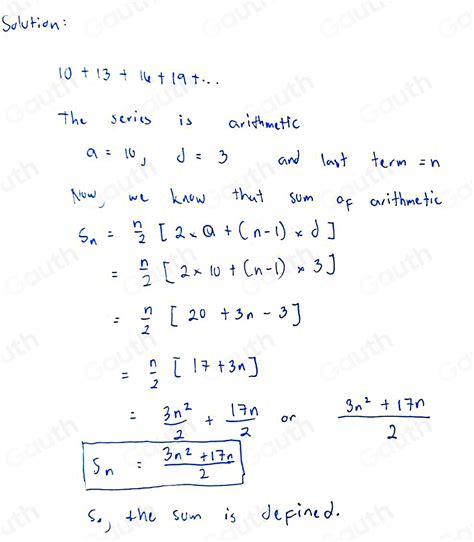 Solution:
10 + 13 + 16 + 19 + ...
The series is arithmetic
a = 10, d = 3 and last term = n
Now, we know that sum of arithmetic
Sn = n/2 [2 × a + (n-1) × d]
= n/2 [2 × 10 + (n-1) × 3]
= n/2 [20 + 3n - 3]
= n/2 [17 + 3n]
= 3n²/2 + 17n/2 or 3n² + 17n/2
Sn = 3n² + 17n/2
So, the sum is defined.
Gauth